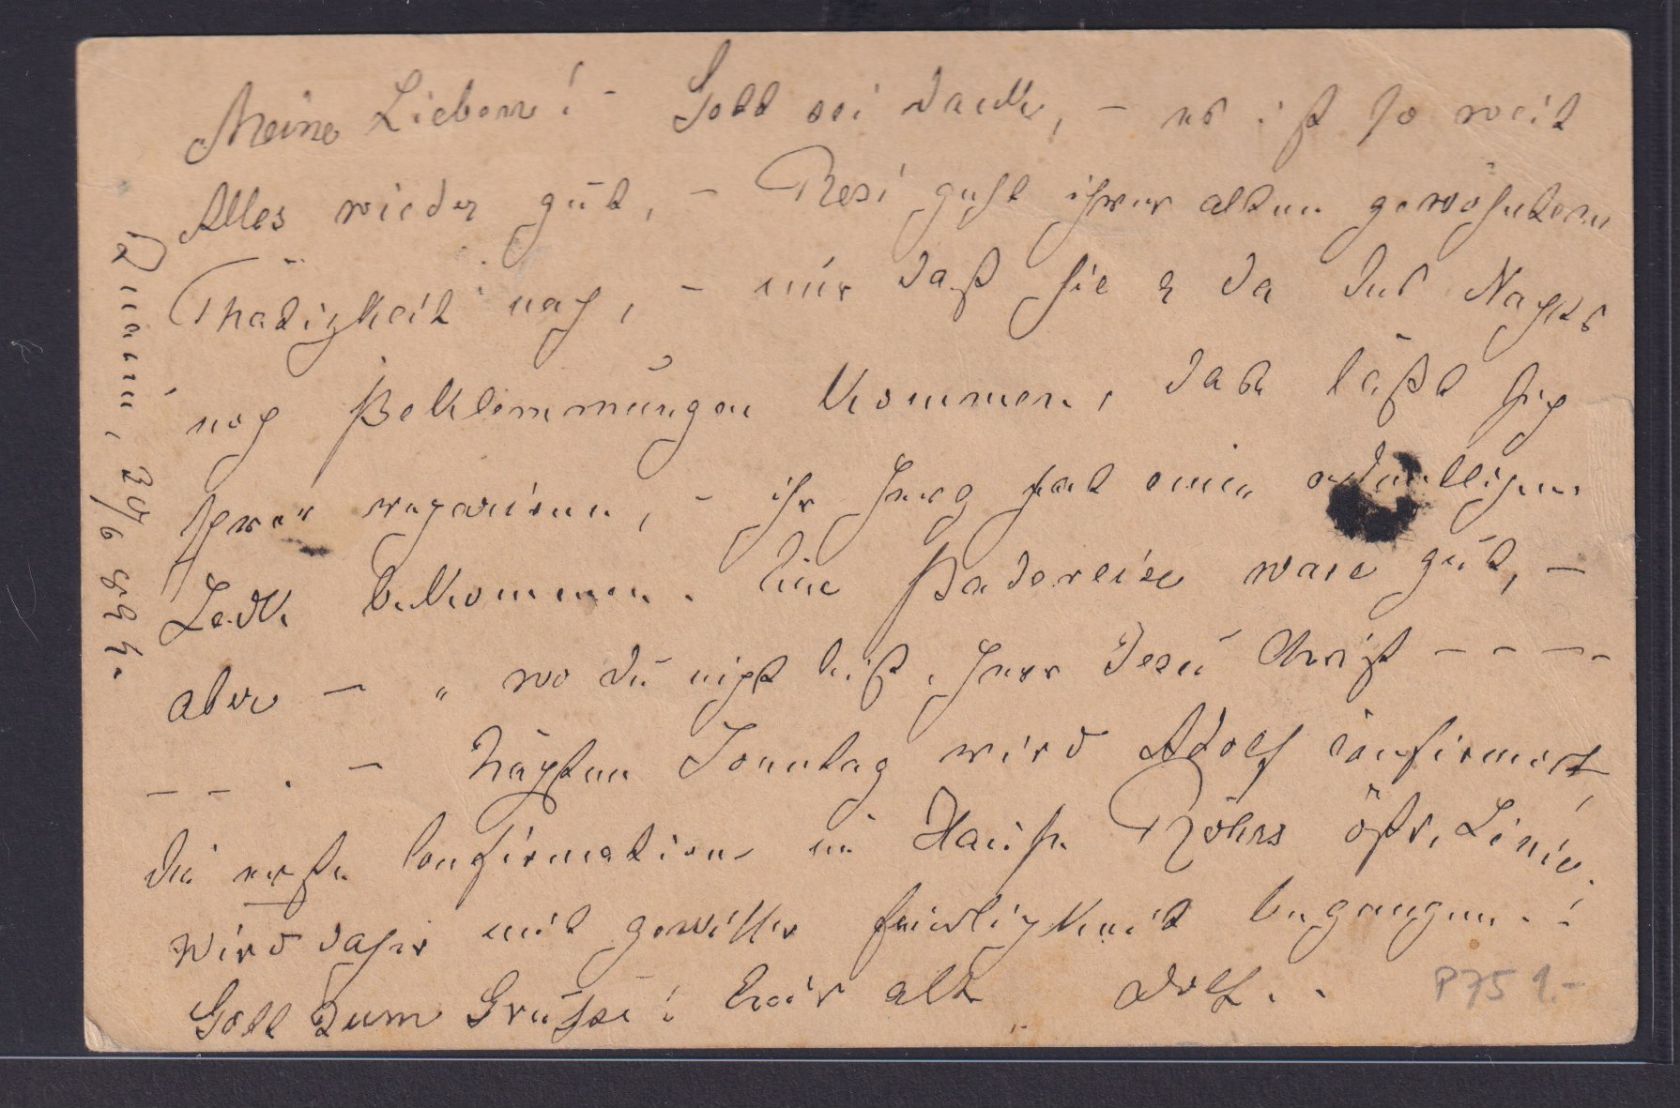 Meine Lieben! – Gott sei Dank, – es ist so weit
Alles wieder gut, – Resi geht ihrer alten gewohnten
Thätigkeit nach, – nur daß hie & da des Nachts
noch Beklemmungen kommen, das läßt sich
schwer repariren, – ihr Herz hat einen
Leck bekommen. Eine Badereise wäre gut, –
aber – „ wo du nicht bist, Herr Jesu Christ – – – –
– – . – Nächsten Sonntag wird Adolf confirmirt,
die erste Confirmation im Hause Röhrs östr. Linie,
wird daher mit gewisser Feierlichkeit begangen. !
Gott zum Gruße! Euer alter Adolf. .
30/6 894.
P75 9.-